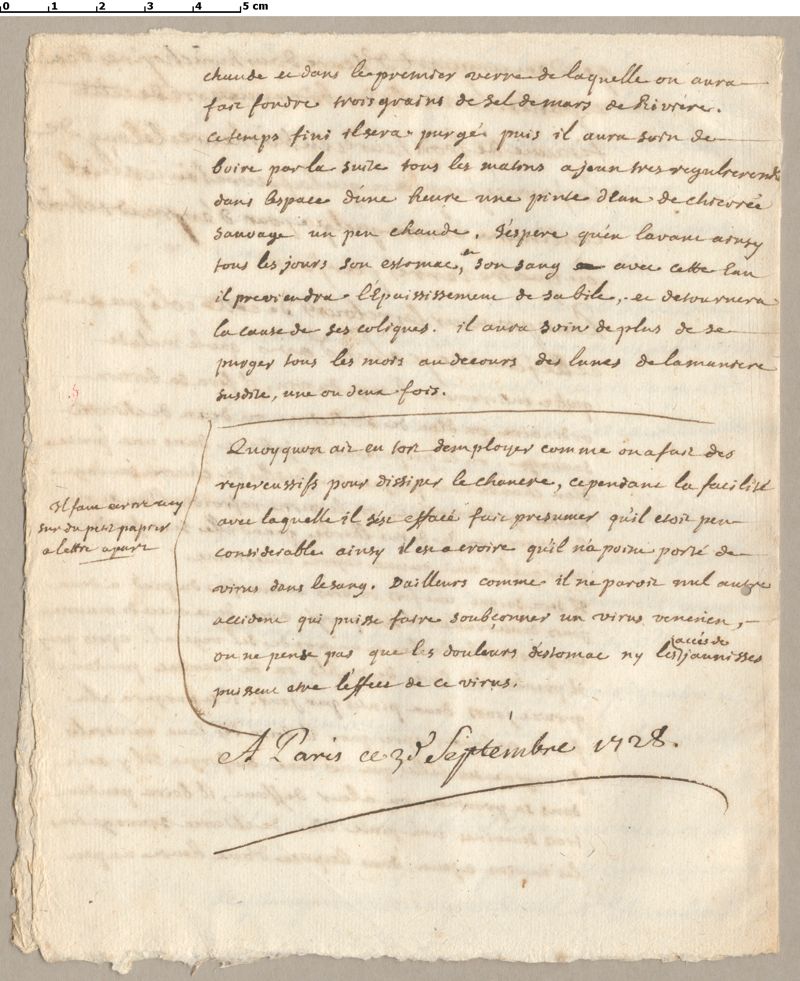 0 1 2 3 4 5 cm
chaude et dans le premier verre de laquelle on aura
fait fondre trois grains de sel de mars de Riviere.
ce temps fini il sera purgé puis il aura soin de
boire par la suite tous les matins a jeun tres regulierem.t
dans l'espace d'une heure une pinte d'Eau de chicorée
sauvage un peu chaude. J'espere qu'en lavant ainsy
tous les jours son estomac, et son sang avec cette Eau
il previendra l'Epaississement de sa bile, et detournera
la cause de ses coliques. il aura soin de plus de se
purger tous les mois au decours des lunes de la maniere
susdite, une ou deux fois.
Quoyquon ait eu tort demployer comme on a fait des
repercussifs pour dissiper le chancre, cependant la facilité
avec laquelle il s'est effacé fait presumer qu'il etoit peu
considerable ainsy il est a croire qu'il n'a point porté de
virus dans le sang. Dailleurs comme il ne paroit nul autre
accident qui puisse faire soubçonner un virus venerien,
on ne pense pas que les douleurs d'estomac ny les accés de jaunisses
puissent etre l'effect de ce virus.
Il faut ecrire cecy
sur du petit papier
a lettre apart
A Paris ce 3e Septembre 1728.